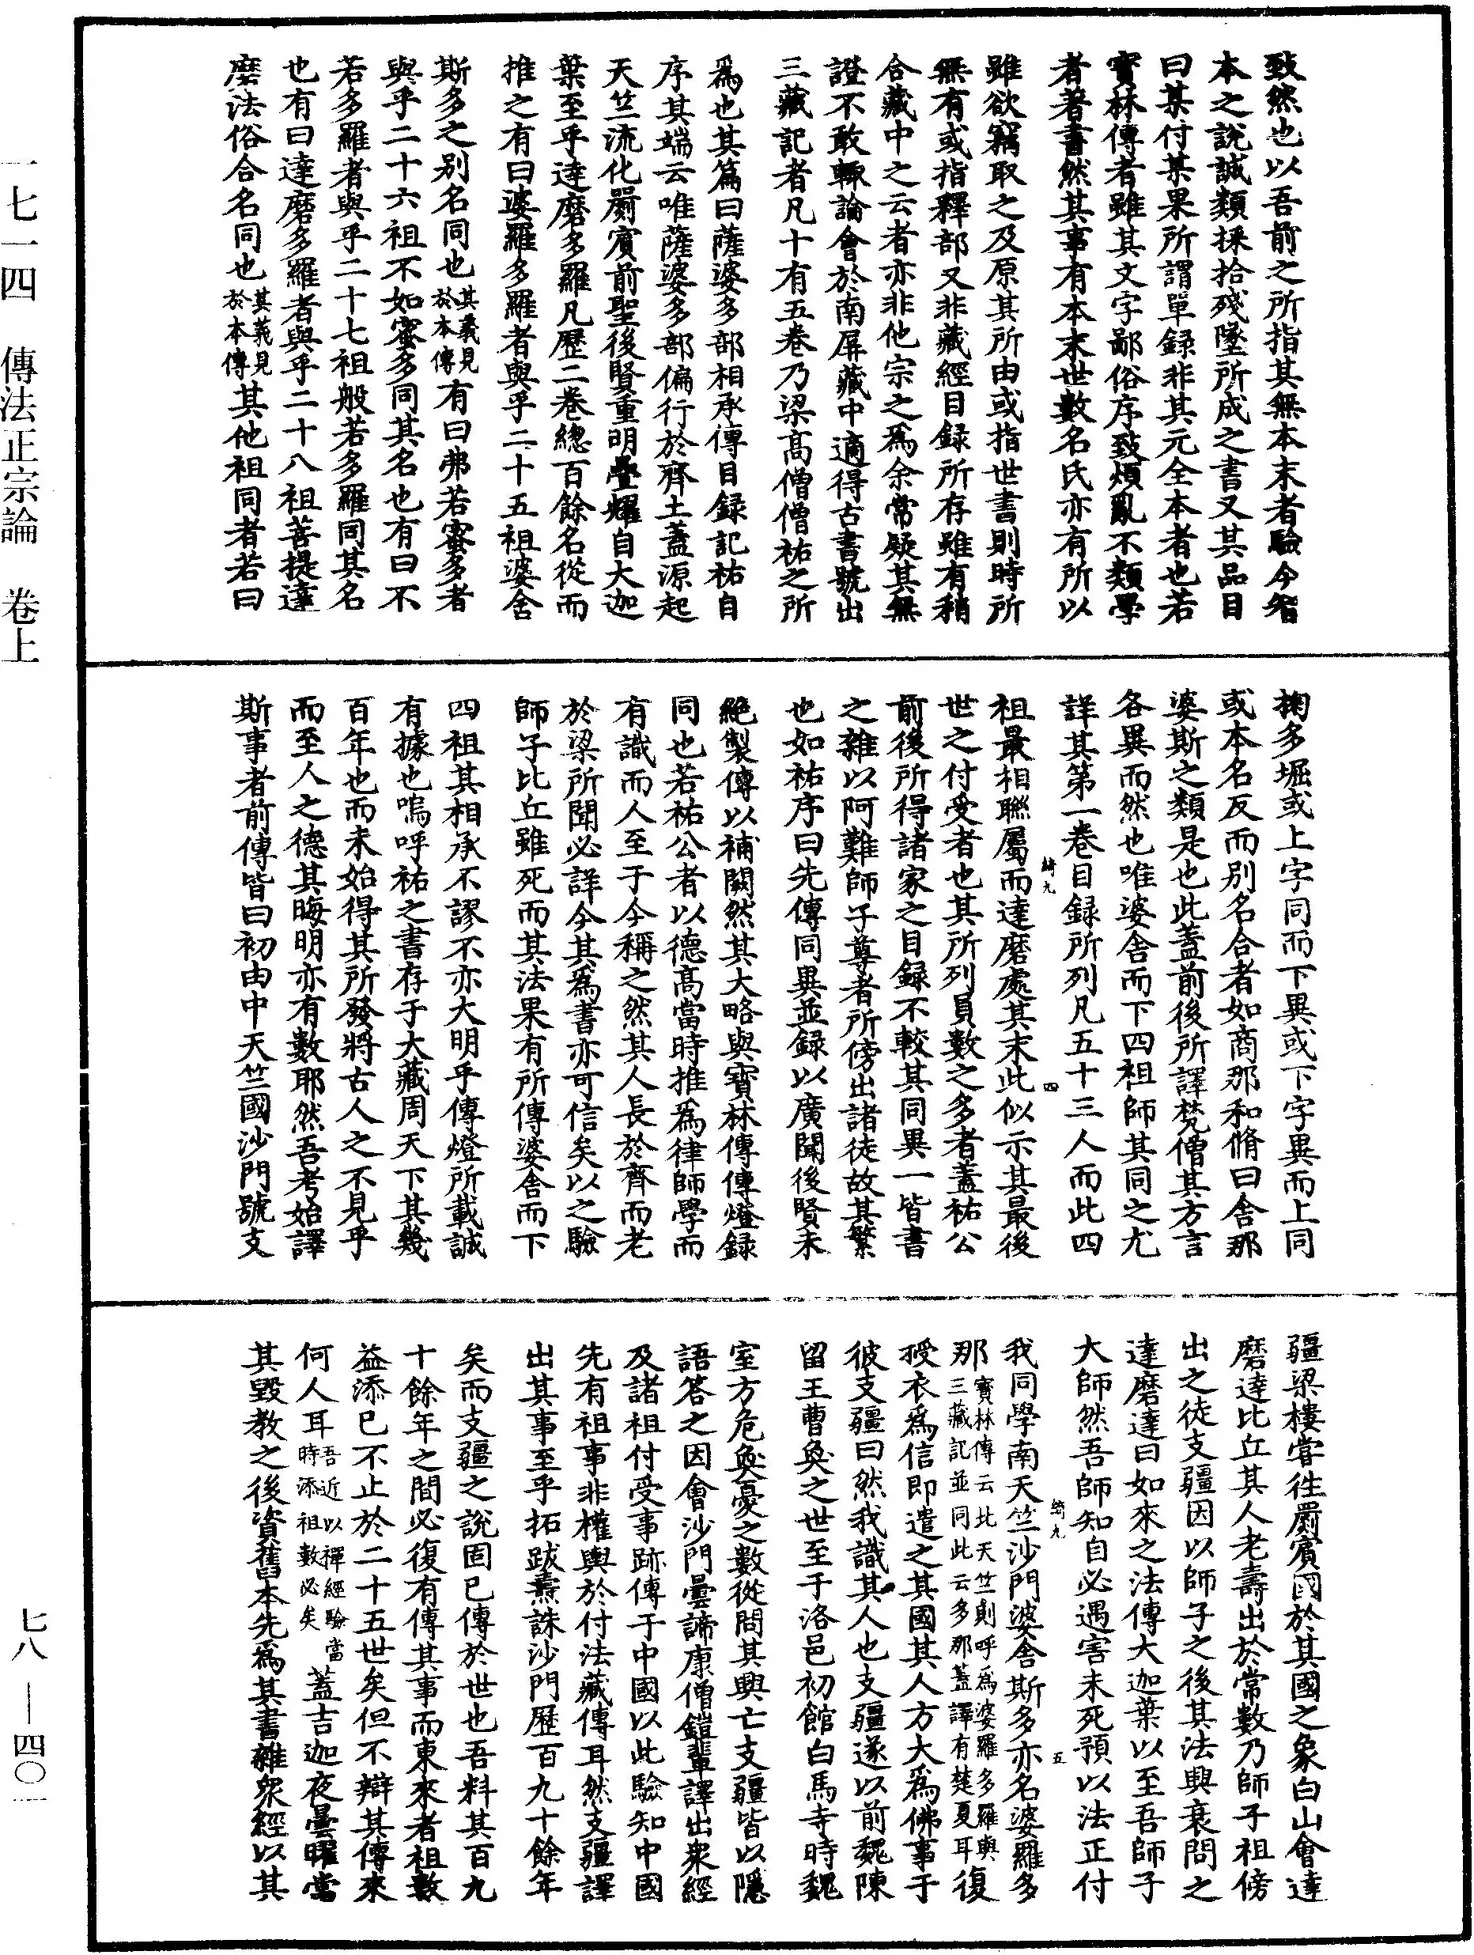 致然也以吾前之所指其無本末者驗今智
本之說誠類採拾殘墜所成之書又其品目
曰某付某果所謂單録非其元全本者也若
寶林傳者雖其文字鄙俗序致煩亂不類學
者著書然其事有本末世數名氏亦有所以
雖欲竊取之及原其所由或指世書則時所
無有或指釋部又非藏經目録所存雖有稍
合藏中之云者亦非他宗之爲余常疑其無
證不敢輙論會於南屏藏中適得古書號出
三藏記者凡十有五卷乃梁髙僧僧祐之所
爲也其篇曰薩婆多部相承傳目録記祐自
序其端云唯薩婆多部偏行於齊土蓋源起
天竺流化罽賓前聖後賢重明疊耀自大迦
葉至乎達磨多羅凡歷二卷總百餘名從而
推之有曰婆羅多羅者與乎二十五祖婆舍
斯多之别名同也其義見於本傳有曰弗若蜜多者
與乎二十六祖不如蜜多同其名也有曰不
若多羅者與乎二十七祖般若多羅同其名
也有曰達磨多羅者與乎二十八祖菩提達
磨法俗合名同也其義見於本傳其他祖同者若曰
掬多堀或上字同而下異或下字異而上同
或本名反而别名合者如商那和脩曰舍那
婆斯之類是也此蓋前後所譯梵僧其方言
各異而然也唯婆舍而下四祖師其同之尤
詳其第一卷目録所列凡五十三人而此四
綺九 四
祖最相聯屬而達磨處其末此似示其最後
世之付受者也其所列員數之多者蓋祐公
前後所得諸家之目録不較其同異一皆書
之雜以阿難師子尊者所傍出諸徒故其繁
也如祐序曰先傳同異並録以廣聞後賢未
絶製傳以補闕然其大略與寶林傳傳燈録
同也若祐公者以德髙當時推爲律師學而
有識而人至于今稱之然其人長於齊而老
於梁所聞必詳今其爲書亦可信矣以之驗
師子比丘雖死而其法果有所傳婆舍而下
四祖其相承不謬不亦大明乎傳燈所載誠
有據也嗚呼祐之書存于大藏周天下其幾
百年也而未始得其所發將古人之不見乎
而至人之德其晦明亦有數耶然吾考始譯
斯事者前傳皆曰初由中天竺國沙門號支
疆梁樓嘗徃罽賓國於其國之象白山會達
磨達比丘其人老壽出於常數乃師子祖傍
出之徒支疆因以師子之後其法興衰問之
達磨達曰如來之法傳大迦葉以至吾師子
大師然吾師知自必遇害未死預以法正付
綺九 五
我同學南天竺沙門婆舍斯多亦名婆羅多
那寶林傳云北天竺則呼爲婆羅多羅與三藏記並同此云多那蓋譯有楚夏耳復
授衣爲信即遣之其國其人方大爲佛事于
彼支疆曰然我識其人也支疆遂以前魏陳
留王曹奐之世至于洛邑初館白馬寺時魏
室方危奐憂之數從問其興亡支疆皆以隱
語答之因會沙門曇諦康僧鎧輩譯出衆經
及諸祖付受事跡傳于中國以此驗知中國
先有祖事非權輿於付法藏傳耳然支疆譯
出其事至乎拓跋燾誅沙門歷百九十餘年
矣而支疆之說固已傳於世也吾料其百九
十餘年之間必復有傳其事而東來者祖數
益添已不止於二十五世矣但不辯其傳來
何人耳吾近以禪經驗當時添祖數必矣蓋吉迦夜曇曜當
其毀教之後資舊本先爲其書雜衆經以其
一七一四　傳法正宗論　卷上
七八—四〇一